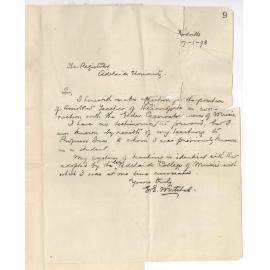 9
Parkville
17-1-98
The Registrar
Adelaide University.
Sir,
I herewith make application for the position
of Assistant Teacher of Pianoforte in con-
nection with the Elder Conservatorium of Music
I have no testimonials to forward, but I
am known by result of my teaching to
Professor Ives, to whom I was previously known
as a student.
My system of teaching is identical with that
adopted by the Adelaide College of Music with
which I was at one time associated
Yours truly